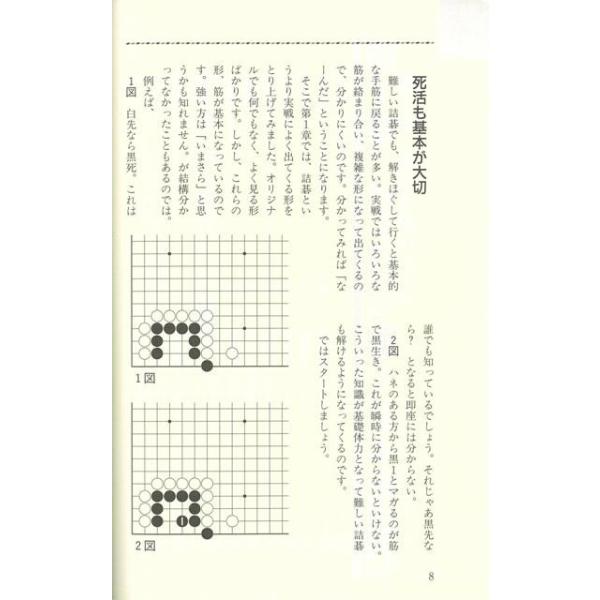 死活も基本が大切
難しい詰碁でも、解きほぐして行くと基本的
な手筋に戻ることが多い。実戦ではいろいろな
筋が絡まり合い、複雑な形になって出てくるの
で、分かりにくいのです。分かってみれば「な
ーんだ」ということになります。
そこで第1章では、詰碁とい
うより実戦によく出てくる形を
とり上げてみました。オリジナ
ルでも何でもなく、よく見る形
ばかりです。しかし、これらの
形、筋が基本になっているので
す。強い方は「いまさら」と思
うかも知れません。が結構分か
ってなかったこともあるのでは。
例えば、
1図　白先なら黒死。これは
誰でも知っているでしょう。それじゃあ黒先な
ら？　となると即座には分からない。
2図　ハネのある方から黒1とマガるのが筋
で黒生き。これが瞬時に分からないといけない。
こういった知識が基礎体力となって難しい詰碁
も解けるようになってくるのです。
ではスタートしましょう。
1図
1
2図
8